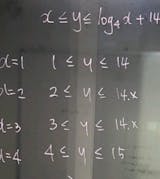 x ≤ y ≤ log₄x + 14
x=1 1 ≤ y ≤ 14
x=2 2 ≤ y ≤ 14.x
x=3 3 ≤ y ≤ 14.x
x=4 4 ≤ y ≤ 15